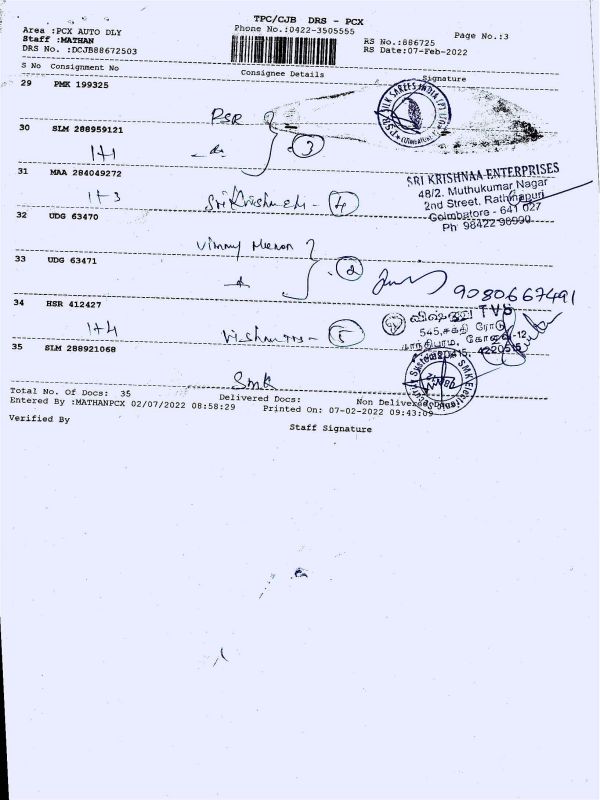 TPC/CJB DRS - PCX
Area :PCX AUTO DLY
Phone No.:0422-3505555
Page No.:3
Staff :MATHAN
RS No.:886725
DRS No. :DCJB88672503
RS Date:07-Feb-2022
S No Consignment No
Consignee Details
Signature
29 PMK 199325
PSR
SILK SAREES INDIA (P) LTD
30 SLM 288959121
1+1
3
31 MAA 284049272
1+3
4
SRI KRISHNAA ENTERPRISES
48/2, Muthukumar Nagar
2nd Street, Rathinapuri
Coimbatore - 641 027
Ph: 98422 96990
32 UDG 63470
Vimmy Menon
33 UDG 63471
2
9080667491
34 HSR 412427
1+4
5
TVS
545, சக்தி ரோடு
35 SLM 288921068
SMK
Total No. Of Docs: 35
Delivered Docs:
Non Delivered Docs:
Entered By :MATHANPCX 02/07/2022 08:58:29
Printed On: 07-02-2022 09:43:09
Verified By
Staff Signature